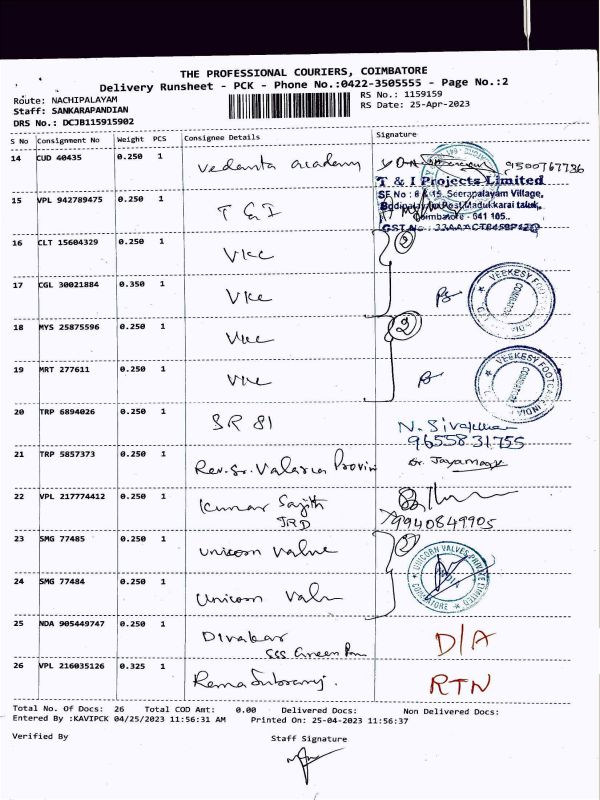 THE PROFESSIONAL COURIERS, COIMBATORE
Delivery Runsheet - PCK - Phone No.:0422-3505555 - Page No.:2
Route: NACHIPALAYAM
RS No.: 1159159
Staff: SANKARAPANDIAN
RS Date: 25-Apr-2023
DRS No.: DCJB115915902
S No Consignment No Weight PCS Consignee Details Signature
14 CUD 40435 0.250 1 Vedanta academy 9500767736
T & I Projects Limited
SF No : 8 & 15, Seerapalayam Village,
15 VPL 942789475 0.250 1 T & I
Bodipalayam Post, Madukkarai taluk,
Coimbatore - 641 105.
GST No.
16 CLT 15604329 0.250 1 VKC 2
17 CGL 30021884 0.350 1 VKC
VEEKESY FOOTCARE INDIA COIMBATORE
18 MYS 25875596 0.250 1 VKC 2
19 MRT 277611 0.250 1 VKC
VEEKESY FOOTCARE INDIA COIMBATORE
20 TRP 6894026 0.250 1 SR 81 N. Sivakumar
9655831755
21 TRP 5857373 0.250 1 Rev.Sr.Valasna Provin Sr. Jayamary
22 VPL 217774412 0.250 1 Kumar Sajith
JRD 9940849905
23 SMG 77485 0.250 1 Unicorn Valve 2
UNICORN VALVES PRIVATE LIMITED COIMBATORE
24 SMG 77484 0.250 1 Unicorn Valve
25 NDA 905449747 0.250 1 Divakar D/A
SSS Green
26 VPL 216035126 0.325 1 Rema RTN
Total No. Of Docs: 26 Total COD Amt: 0.00 Delivered Docs: Non Delivered Docs:
Entered By :KAVIPCK 04/25/2023 11:56:31 AM Printed On: 25-04-2023 11:56:37
Verified By Staff Signature